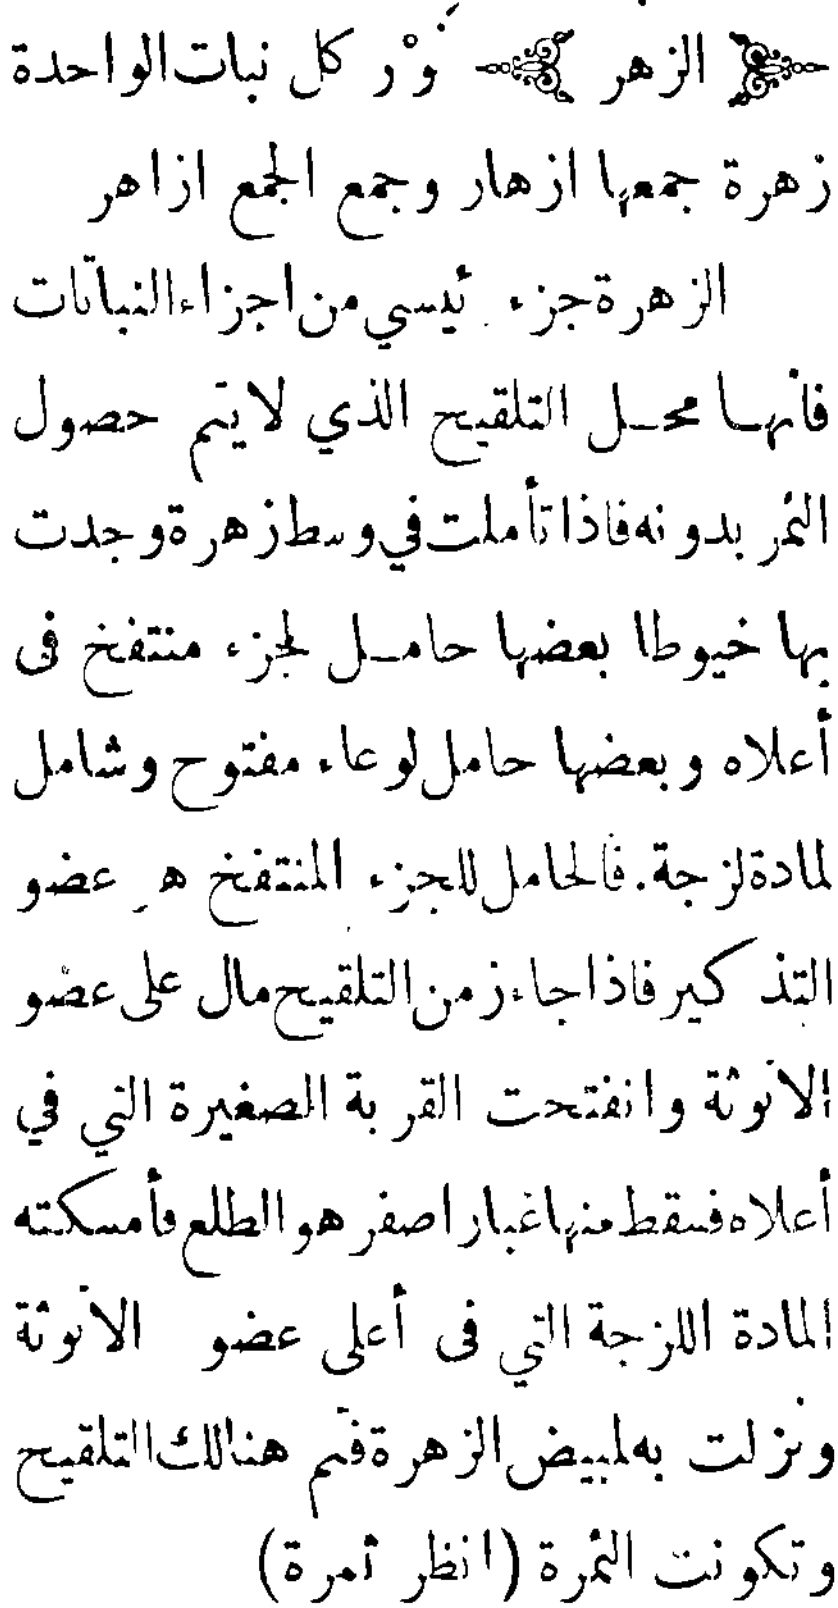 ﴿ الزهر ﴾ نَوْر كل نبات الواحدة
زهرة جمعها ازهار وجمع الجمع ازاهر
الزهرة جزء ئيسي من اجزاء النباتات
فانها محل التلقيح الذي لا يتم حصول
الثمر بدونه فاذا تأملت في وسط زهرة وجدت
بها خيوطا بعضها حامل لجزء منتفخ في
أعلاه وبعضها حامل لوعاء مفتوح وشامل
لمادة لزجة. فالحامل للجزء المنتفخ هو عضو
التذكير فاذا جاء زمن التلقيح مال على عضو
الانوثة وانفتحت القربة الصغيرة التي في
أعلاه فسقط منها غبار اصفر هو الطلع فأمسكته
المادة اللزجة التي في أعلى عضو الانوثة
ونزلت به لمبيض الزهرة فتم هنالك التلقيح
وتكونت الثمرة (انظر ثمرة)